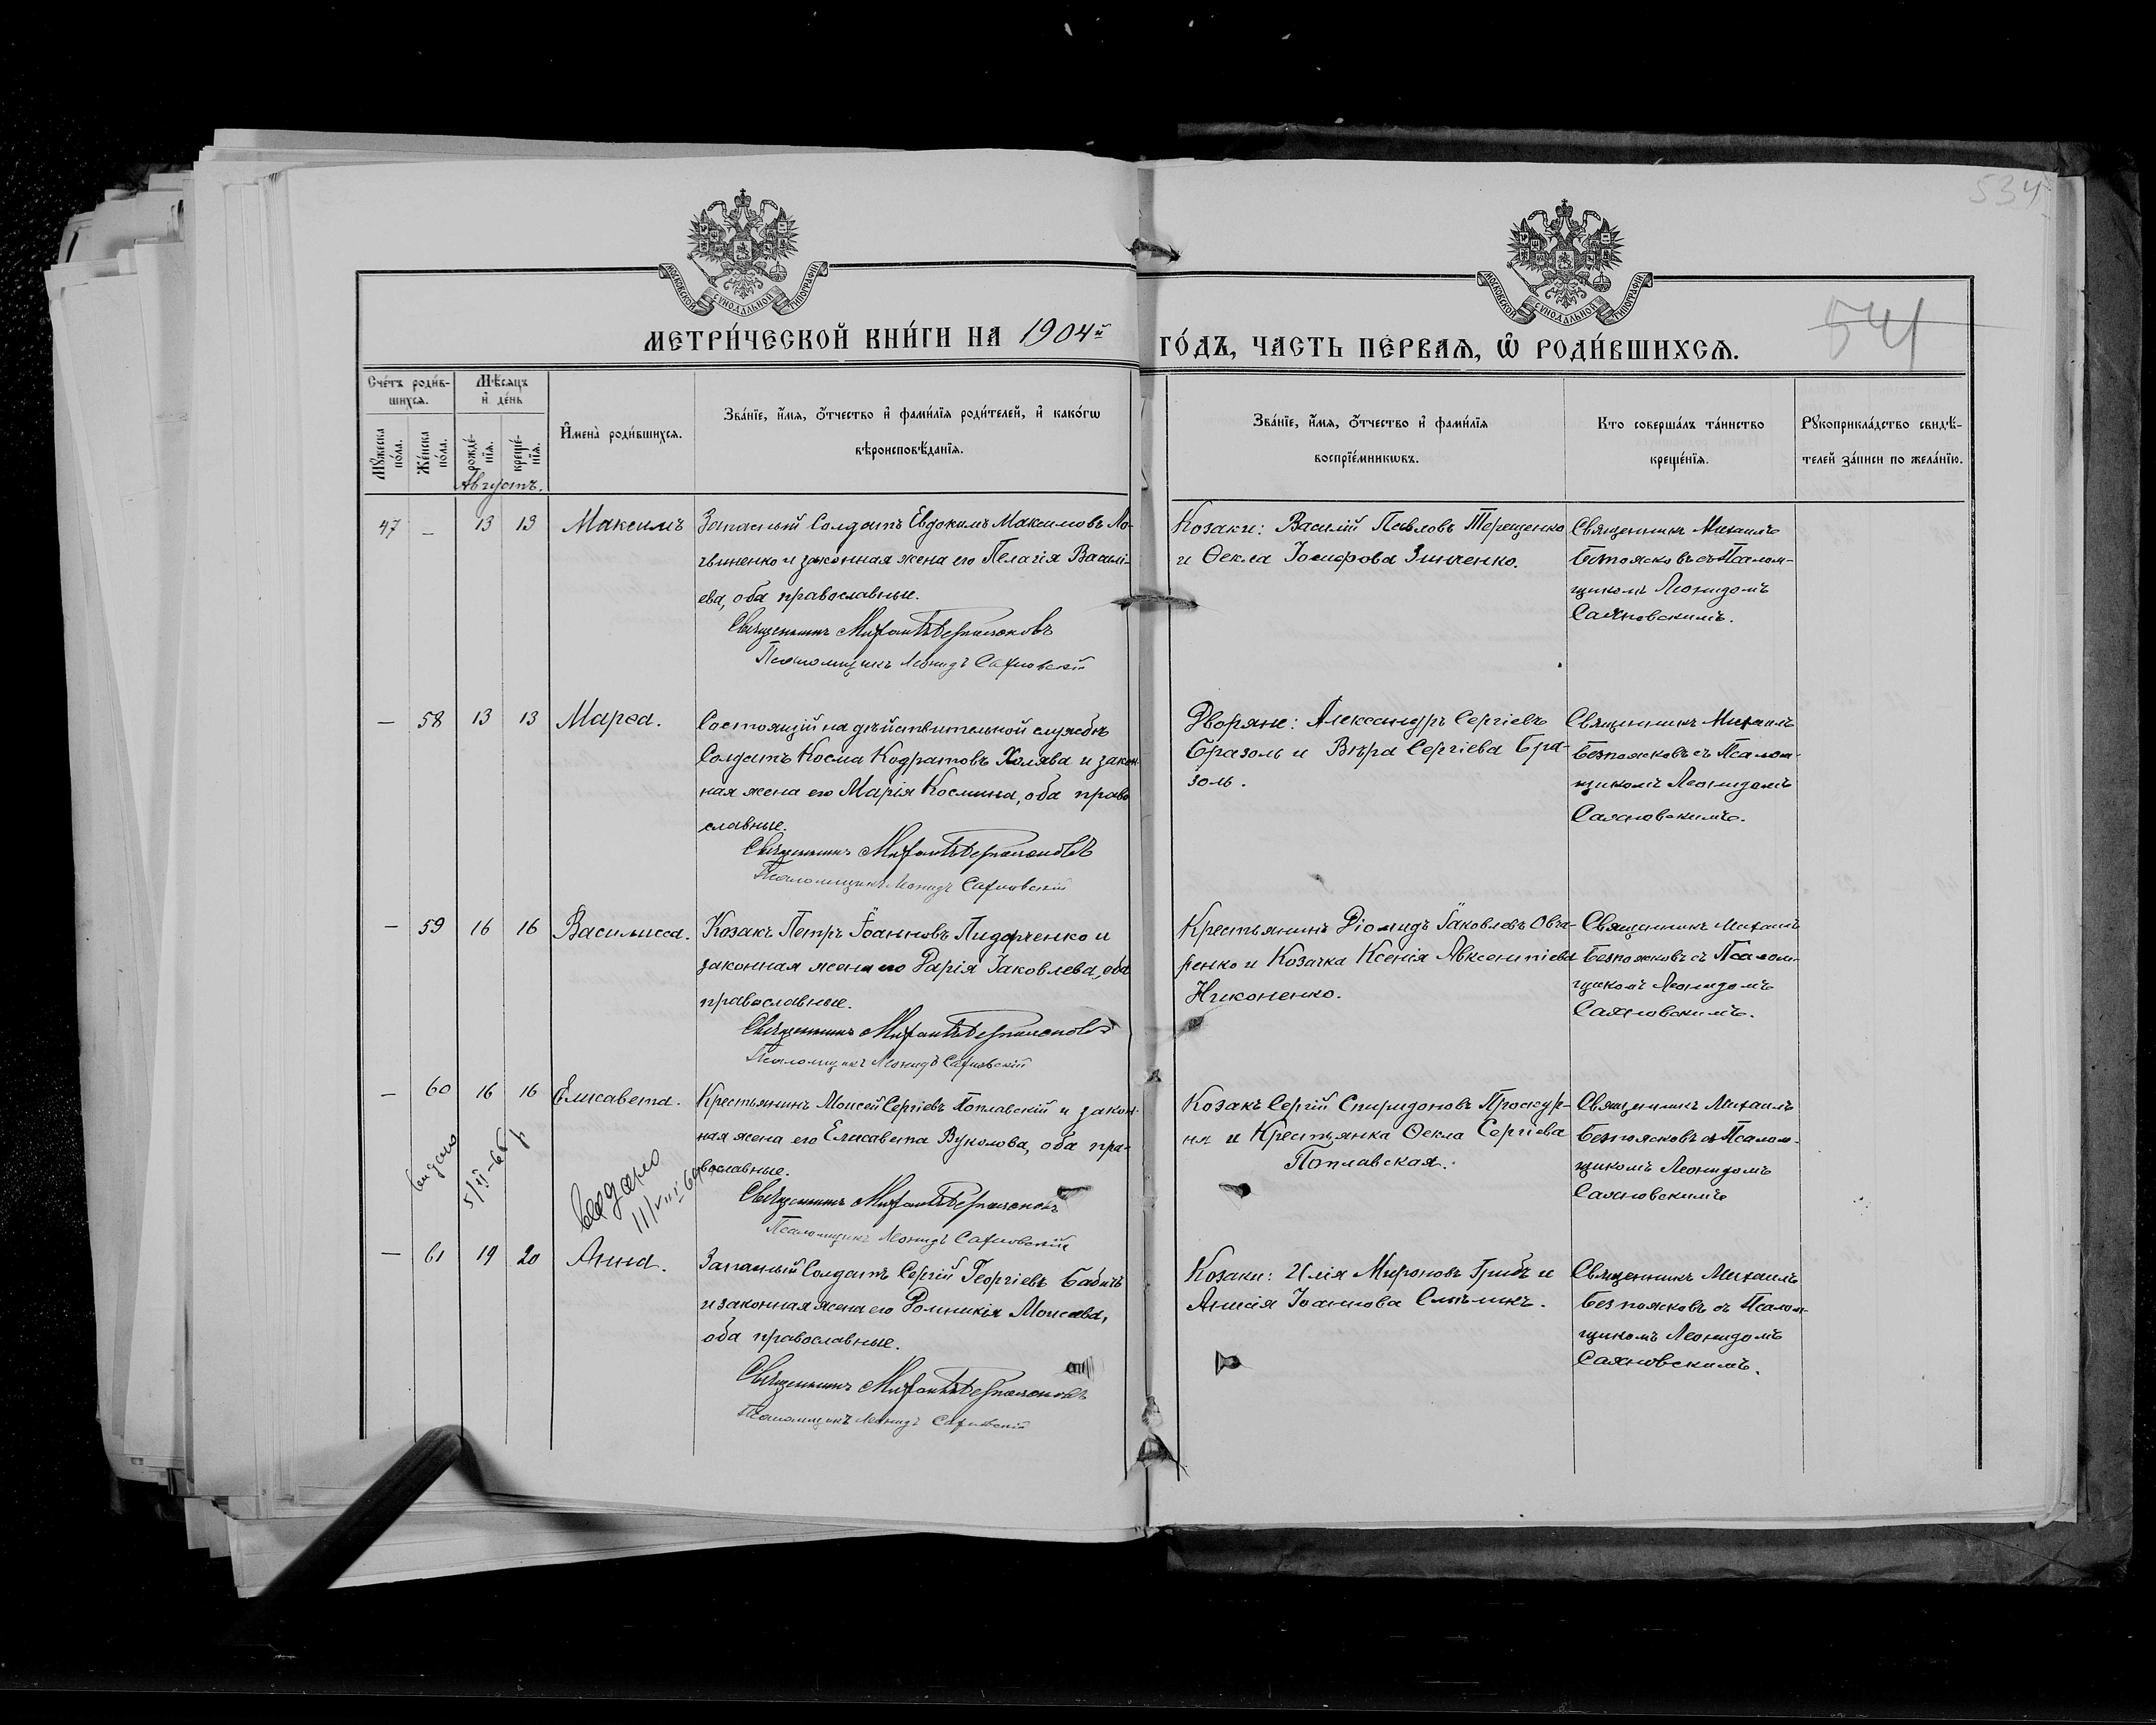 534
54
МОСКОВСКОЙ СѴНОДАЛЬНОЙ ТИПОГРАФІИ
МОСКОВСКОЙ СѴНОДАЛЬНОЙ ТИПОГРАФІИ
МЕТРИ́ЧЕСКОЙ КНИ́ГИ НА 1904й ГО́ДЪ, ЧАСТЬ ПЕ́РВАѦ, Ѡ҆ РОДИ́ВШИХСѦ.
Сче́тъ роди́в-
шихсѧ.
Мѣ́сѧцъ
и҆ де́нь
Мꙋ́жеска
по́ла.
Же́нска
по́ла.
рожде́-
нїѧ.
креще́-
нїѧ.
И҆мена̀ роди́вшихсѧ.
Зва́нїе, и҆́мѧ, ѻ҆́тчество и҆ фами́лїѧ роди́телей, и҆ како́гѡ
вѣроисповѣ́данїѧ.
Зва́нїе, и҆́мѧ, ѻ҆́тчество и҆ фами́лїѧ
воспрїе́мникѡвъ.
Кто соверша́лъ та́инство
креще́нїѧ.
Рꙋкоприкла́дство свидѣ́-
телей за́писи по жела́нїю.
Августъ.
47 – 13 13 Максимъ
Запасный Солдатъ Евдокимъ Максимовъ Ло-
гвиненко и законная жена его Пелагія Василі-
ева, оба православные.
Священникъ Михаилъ Безпоясковъ
Псаломщикъ Леонидъ Саяновскій
Козаки: Василій Павловъ Терещенко
и Ѳекла Іосифова Зинченко.
Священникъ Михаилъ
Безпоясковъ съ Псалом-
щикомъ Леонидомъ
Саяновскимъ.
– 58 13 13 Марѳа.
Состоящій на дѣйствительной службѣ
Солдатъ Косма Кодратовъ Холява и закон-
ная жена его Марія Космина, оба право
славные.
Священникъ Михаилъ Безпоясковъ
Псаломщикъ Леонидъ Саяновскій
Дворяне: Александръ Сергіевъ
Бразоль и Вѣра Сергіева Бра-
золь.
Священникъ Михаилъ
Безпоясковъ съ Псалом-
щикомъ Леонидомъ
Саяновскимъ.
– 59 16 16 Василисса.
Козакъ Петръ Іоанновъ Пидорченко и
законная жена его Дарія Іаковлева, оба
православные.
Священникъ Михаилъ Безпоясковъ
Псаломщикъ Леонидъ Саяновскій
Крестьянинъ Діомидъ Іаковлевъ Овча-
ренко и Козачка Ксенія Авксентіева
Никоненко.
Священникъ Михаилъ
Безпоясковъ съ Псалом-
щикомъ Леонидомъ
Саяновскимъ.
– 60 16 16 Елисавета.
Крестьянинъ Моисей Сергіевъ Поплавскій и закон-
ная жена его Елисавета Вуколова, оба пра-
вославные.
Священникъ Михаилъ Безпоясковъ
Псаломщикъ Леонидъ Саяновскій
Козакъ Сергій Спиридоновъ Проскур-
ня и Крестьянка Ѳекла Сергіева
Поплавская.
Священникъ Михаилъ
Безпоясковъ съ Псалом-
щикомъ Леонидомъ
Саяновскимъ
видано
5/II-66 р
видано
11/VIII 69
– 61 19 20 Анна.
Запасный Солдатъ Сергій Георгіевъ Бабичъ
и законная жена его Домникія Моисеева,
оба православные.
Священникъ Михаилъ Безпоясковъ
Псаломщикъ Леонидъ Саяновскій
Козаки: Илія Мироновъ Грибъ и
Анисія Іоаннова Слѣпикъ.
Священникъ Михаилъ
Безпоясковъ съ Псалом-
щикомъ Леонидомъ
Саяновскимъ.